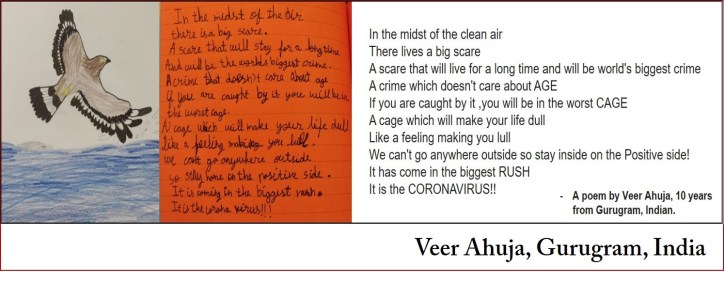 In the midst of the air
there is a big scare.
A scare that will stay for a long time
And will be the worlds biggest crime.
A crime that doesn't care about age
If you are caught by it you will be in
the worst cage.
A cage which will make your life dull
Like a feeling making you lull.
We cant go anywhere outside
so stay home on the positive side.
It is coming in the biggest rush.
It is the corona virus!!!
In the midst of the clean air
There lives a big scare
A scare that will live for a long time and will be world's biggest crime
A crime which doesn't care about AGE
If you are caught by it ,you will be in the worst CAGE
A cage which will make your life dull
Like a feeling making you lull
We can't go anywhere outside so stay inside on the Positive side!
It has come in the biggest RUSH
It is the CORONAVIRUS!!
- A poem by Veer Ahuja, 10 years
from Gurugram, Indian.
Veer Ahuja, Gurugram, India